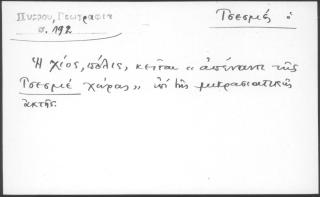 Πύρρου, Γεωγραφία
σ. 192
Τσεσμέ :
Ἡ Χίος, πόλις, κεῖται « ἀπέναντι τῆς
Τσεσμέ χώρας » ἐπὶ τῆς μικρασιατικῆς
ἀκτῆς.